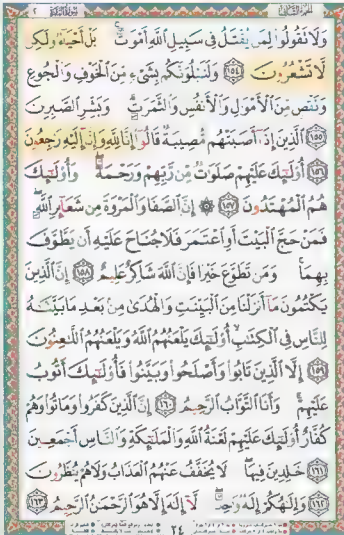 وَلَا تَقُولُوا۟ لِمَن يُقْتَلُ فِى سَبِيلِ ٱللَّهِ أَمْوَٰتٌۢ ۚ بَلْ أَحْيَآءٌ وَلَٰكِن
لَّا تَشْعُرُونَ ١٥٤ وَلَنَبْلُوَنَّكُم بِشَىْءٍ مِّنَ ٱلْخَوْفِ وَٱلْجُوعِ
وَنَقْصٍ مِّنَ ٱلْأَمْوَٰلِ وَٱلْأَنفُسِ وَٱلثَّمَرَٰتِ ۗ وَبَشِّرِ ٱلصَّٰبِرِينَ
١٥٥ ٱلَّذِينَ إِذَآ أَصَٰبَتْهُم مُّصِيبَةٌ قَالُوٓا۟ إِنَّا لِلَّهِ وَإِنَّآ إِلَيْهِ رَٰجِعُونَ
١٥٦ أُو۟لَٰٓئِكَ عَلَيْهِمْ صَلَوَٰتٌ مِّن رَّبِّهِمْ وَرَحْمَةٌ ۖ وَأُو۟لَٰٓئِكَ
هُمُ ٱلْمُهْتَدُونَ ١٥٧ ۞ إِنَّ ٱلصَّفَا وَٱلْمَرْوَةَ مِن شَعَآئِرِ ٱللَّهِ ۖ
فَمَنْ حَجَّ ٱلْبَيْتَ أَوِ ٱعْتَمَرَ فَلَا جُنَاحَ عَلَيْهِ أَن يَطَّوَّفَ
بِهِمَا ۚ وَمَن تَطَوَّعَ خَيْرًا فَإِنَّ ٱللَّهَ شَاكِرٌ عَلِيمٌ ١٥٨ إِنَّ ٱلَّذِينَ
يَكْتُمُونَ مَآ أَنزَلْنَا مِنَ ٱلْبَيِّنَٰتِ وَٱلْهُدَىٰ مِنۢ بَعْدِ مَا بَيَّنَّٰهُ
لِلنَّاسِ فِى ٱلْكِتَٰبِ ۙ أُو۟لَٰٓئِكَ يَلْعَنُهُمُ ٱللَّهُ وَيَلْعَنُهُمُ ٱللَّٰعِنُونَ
١٥٩ إِلَّا ٱلَّذِينَ تَابُوا۟ وَأَصْلَحُوا۟ وَبَيَّنُوا۟ فَأُو۟لَٰٓئِكَ أَتُوبُ
عَلَيْهِمْ ۚ وَأَنَا ٱلتَّوَّابُ ٱلرَّحِيمُ ١٦٠ إِنَّ ٱلَّذِينَ كَفَرُوا۟ وَمَاتُوا۟ وَهُمْ
كُفَّارٌ أُو۟لَٰٓئِكَ عَلَيْهِمْ لَعْنَةُ ٱللَّهِ وَٱلْمَلَٰٓئِكَةِ وَٱلنَّاسِ أَجْمَعِينَ
١٦١ خَٰلِدِينَ فِيهَا ۖ لَا يُخَفَّفُ عَنْهُمُ ٱلْعَذَابُ وَلَا هُمْ يُنظَرُونَ
١٦٢ وَإِلَٰهُكُمْ إِلَٰهٌ وَٰحِدٌ ۖ لَّآ إِلَٰهَ إِلَّا هُوَ ٱلرَّحْمَٰنُ ٱلرَّحِيمُ ١٦٣
٢٤